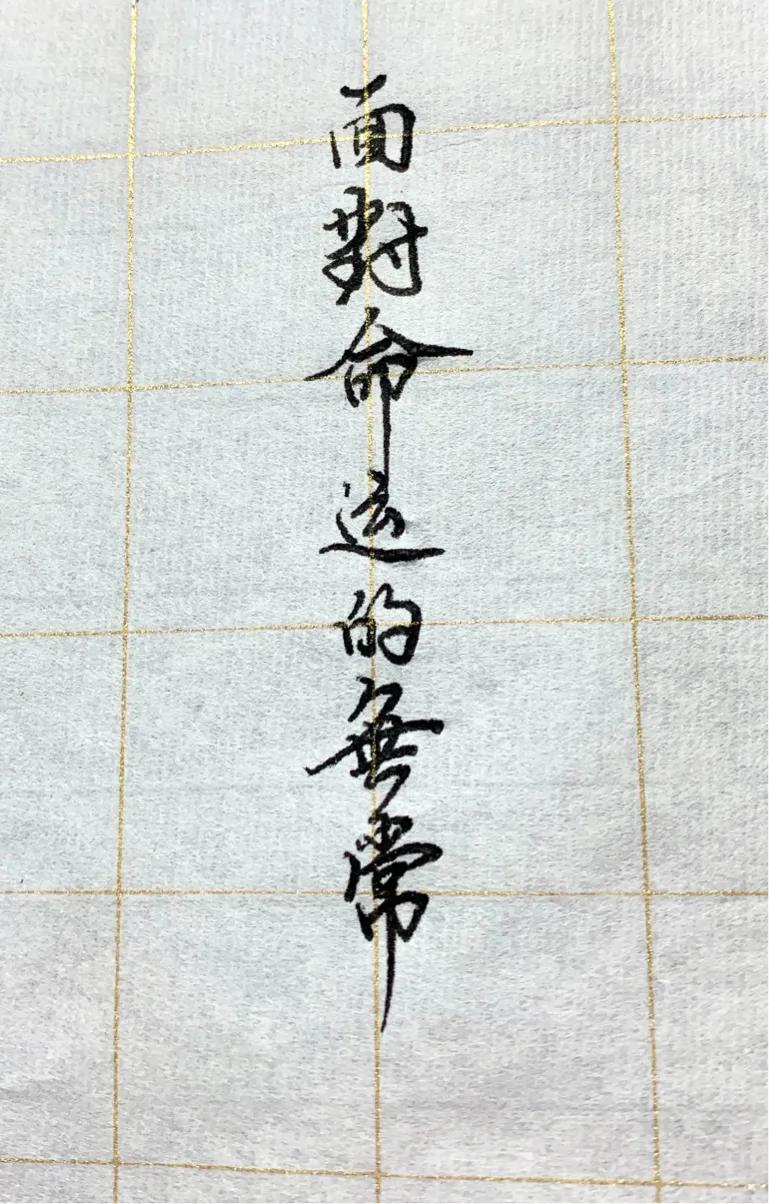 面對命运的無常